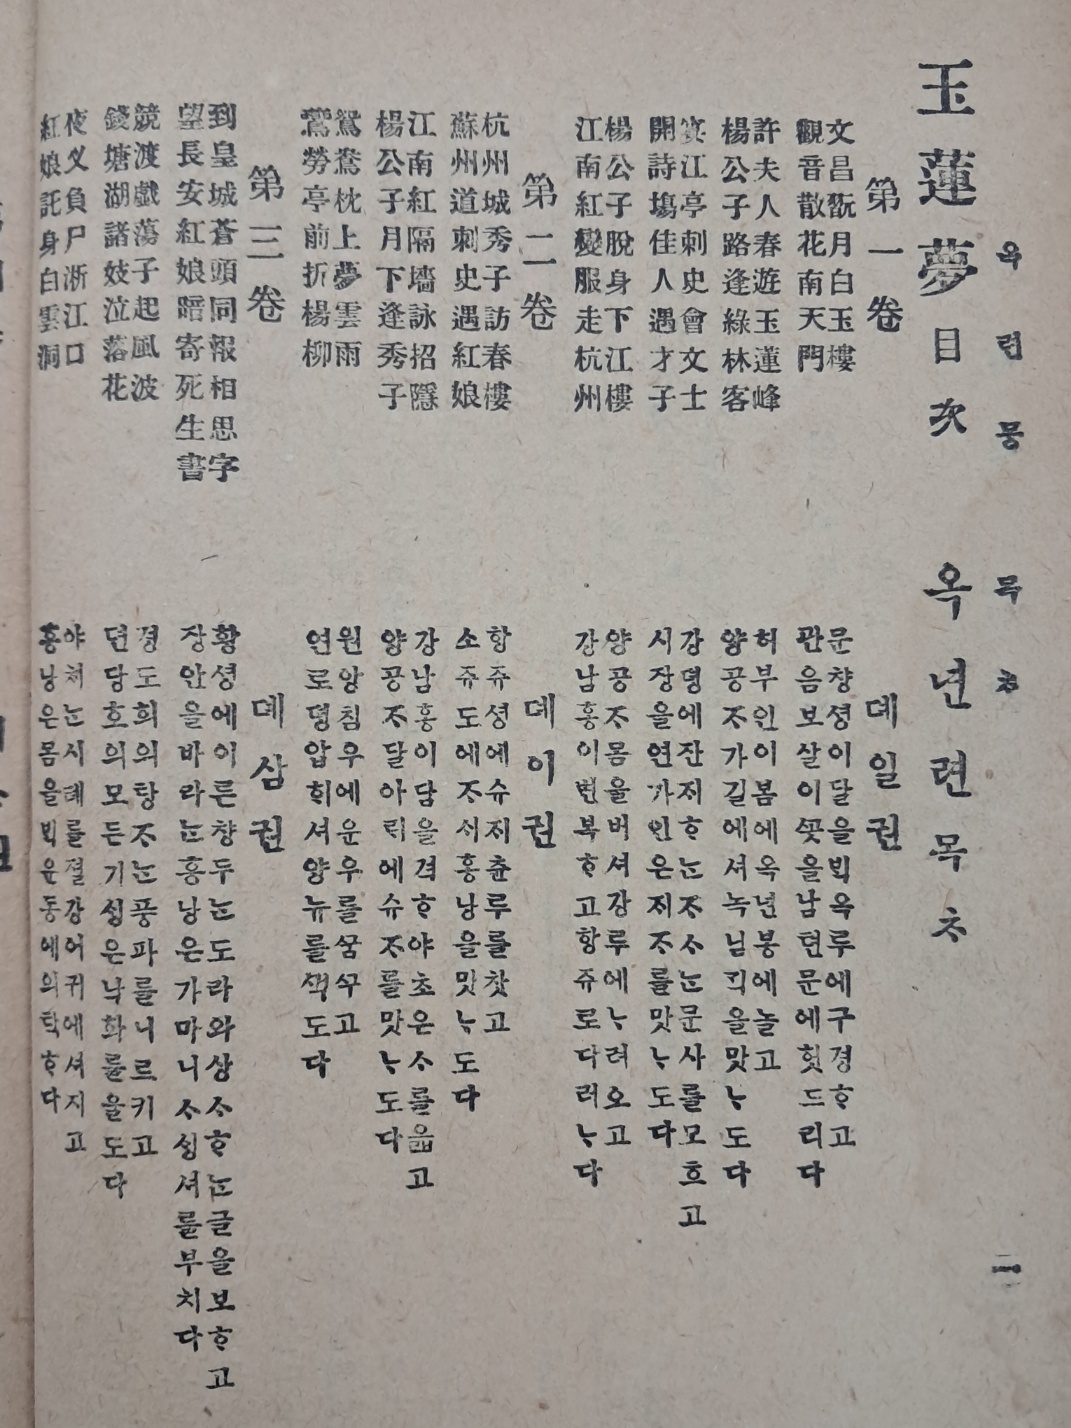 옥련몽 목ᄎᆞ 二
玉蓮夢目次 옥년련목ᄎᆞ
第一卷 뎨일권
文昌翫月白玉樓 문챵셩이달을ᄇᆡᆨ옥루에구경ᄒᆞ고
觀音散花南天門 관음보살이ᄭᅩᆺ을남텬문에헛드리다
許夫人春遊玉蓮峰 허부인이봄에옥년봉에놀고
楊公子路逢綠林客 양공ᄌᆞ가길에셔녹님ᄀᆡᆨ을맛ᄂᆞ도다
宴江亭刺史會文士 강뎡에잔ᄎᆡᄒᆞᄂᆞᆫᄌᆞᄉᆞᄂᆞᆫ문사를모흐고
開詩塲佳人遇才子 시장을연가인은ᄌᆡᄌᆞ를맛ᄂᆞ도다
楊公子脫身下江樓 양공ᄌᆞ몸을버셔강루에ᄂᆞ려오고
江南紅變服走杭州 강남홍이변복ᄒᆞ고항쥬로다러ᄂᆞ다
第二卷 뎨이권
杭州城秀子訪春樓 항쥬셩에슈ᄌᆡ츈루를찻고
蘇州道刺史遇紅娘 소쥬도에ᄌᆞᄉᆞ홍낭을맛ᄂᆞ도다
江南紅隔墻詠招隱 강남홍이담을격ᄒᆞ야초은ᄉᆞ를읇고
楊公子月下逢秀子 양공ᄌᆞ달아ᄅᆡ에슈ᄌᆞ를맛ᄂᆞ도다
鴛鴦枕上夢雲雨 원앙침우에운우를ᄭᅮᆷᄭᅮ고
鷰勞亭前折楊柳 연로뎡압희셔양뉴를ᄭᅥᆨ도다
第三卷 뎨삼권
到皇城蒼頭同報相思字 황셩에이른챵두ᄂᆞᆫ도라와상ᄉᆞᄒᆞᄂᆞᆫ글을보ᄒᆞ고
望長安紅娘暗寄死生書 장안을바라ᄂᆞᆫ홍낭은가마니ᄉᆞᄉᆡᆼ셔를부치다
競渡戱蕩子起風波 경도희의탕ᄌᆞᄂᆞᆫ풍파를니르키고
錢塘湖諸妓泣落花 뎐당호의모든기ᄉᆡᆼ은낙화를을도다
夜叉負尸淅江口 야ᄎᆞᄂᆞᆫ시톄를졀강어귀에셔지고
紅娘託身白雲洞 홍낭은몸을ᄇᆡᆨ운동에의탁ᄒᆞ다